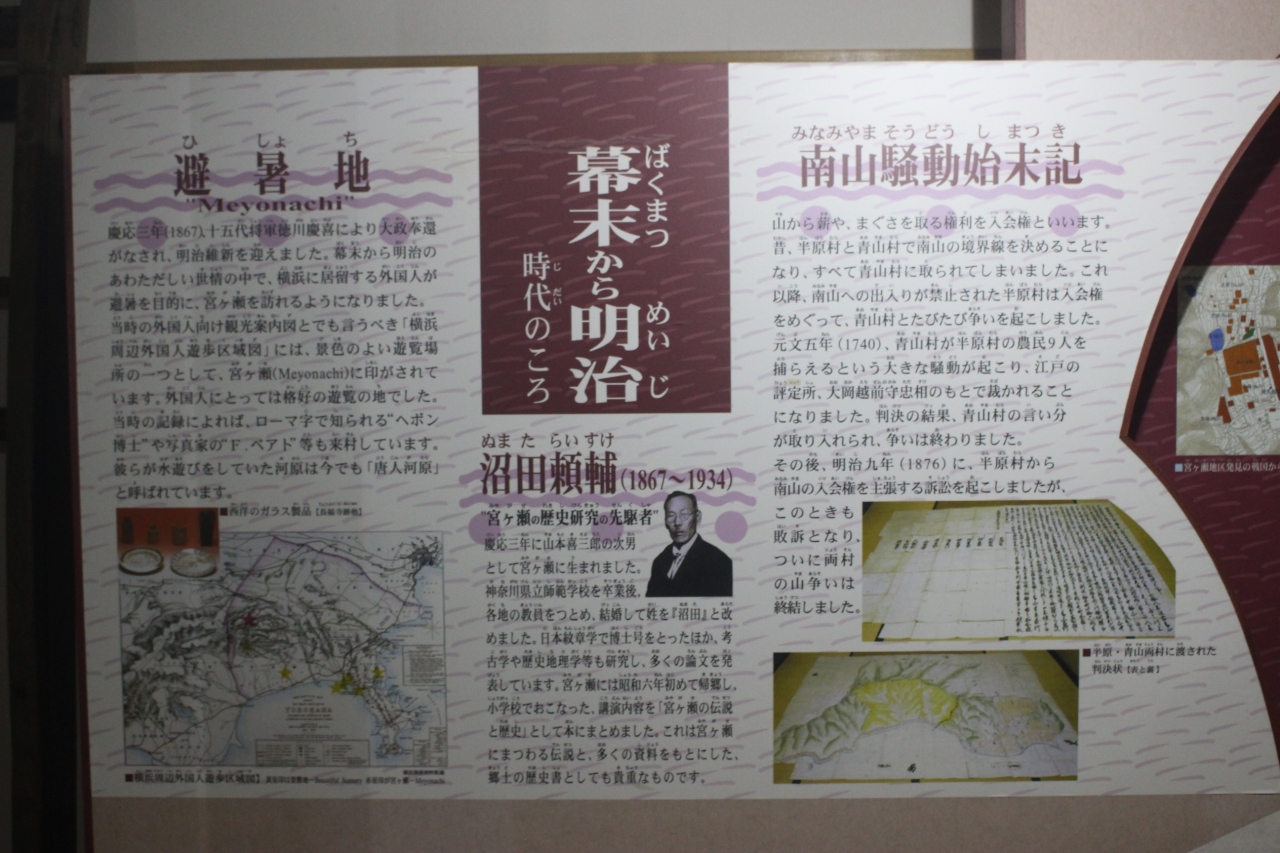 避暑地
ひしょち
"Meyonachi"
慶応三年(1867)、十五代将軍徳川慶喜により大政奉還
がなされ、明治維新を迎えました。幕末から明治の
あわただしい世情の中で、横浜に居留する外国人が
避暑を目的に、宮ヶ瀬を訪れるようになりました。
当時の外国人向け観光案内図とでも言うべき「横浜
周辺外国人遊歩区域図」には、景色のよい遊覧場
所の一つとして、宮ヶ瀬(Meyonachi)に印がされて
います。外国人にとっては格好の遊覧の地でした。
当時の記録によれば、ローマ字で知られる"ヘボン
博士"や写真家の"F.ベアド"等も来村しています。
彼らが水遊びをしていた河原は今でも「唐人河原」
と呼ばれています。
■西洋のガラス製品
YOKOHAMA
■横浜周辺外国人遊歩区域図
幕末から明治
ばくまつ めいじ
時代のころ
じだい
ぬまたらいすけ
沼田頼輔(1867〜1934)
"宮ヶ瀬の歴史研究の先駆者"
慶応三年に山本喜三郎の次男
として宮ヶ瀬に生まれました。
神奈川県立師範学校を卒業後、
各地の教員をつとめ、結婚して姓を『沼田』と改
めました。日本紋章学で博士号をとったほか、考
古学や歴史地理学等も研究し、多くの論文を発
表しています。宮ヶ瀬には昭和六年初めて帰郷し、
小学校でおこなった、講演内容を「宮ヶ瀬の伝説
と歴史」として本にまとめました。これは宮ヶ瀬
にまつわる伝説と、多くの資料をもとにした、
郷土の歴史書としても貴重なものです。
みなみやまそうどうしまつき
南山騒動始末記
山から薪や、まぐさを取る権利を入会権といいます。
昔、半原村と青山村で南山の境界線を決めることに
なり、すべて青山村に取られてしまいました。これ
以降、南山への出入りが禁止された半原村は入会権
をめぐって、青山村とたびたび争いを起こしました。
元文五年(1740)、青山村が半原村の農民9人を
捕らえるという大きな騒動が起こり、江戸の
評定所、大岡越前守忠相のもとで裁かれること
になりました。判決の結果、青山村の言い分
が取り入れられ、争いは終わりました。
その後、明治九年(1876)に、半原村から
南山の入会権を主張する訴訟を起こしましたが、
このときも
敗訴となり、
ついに両村
の山争いは
終結しました。
■半原・青山両村に渡された
判決状【表と裏】
■宮ヶ瀬地区発見の戦国か